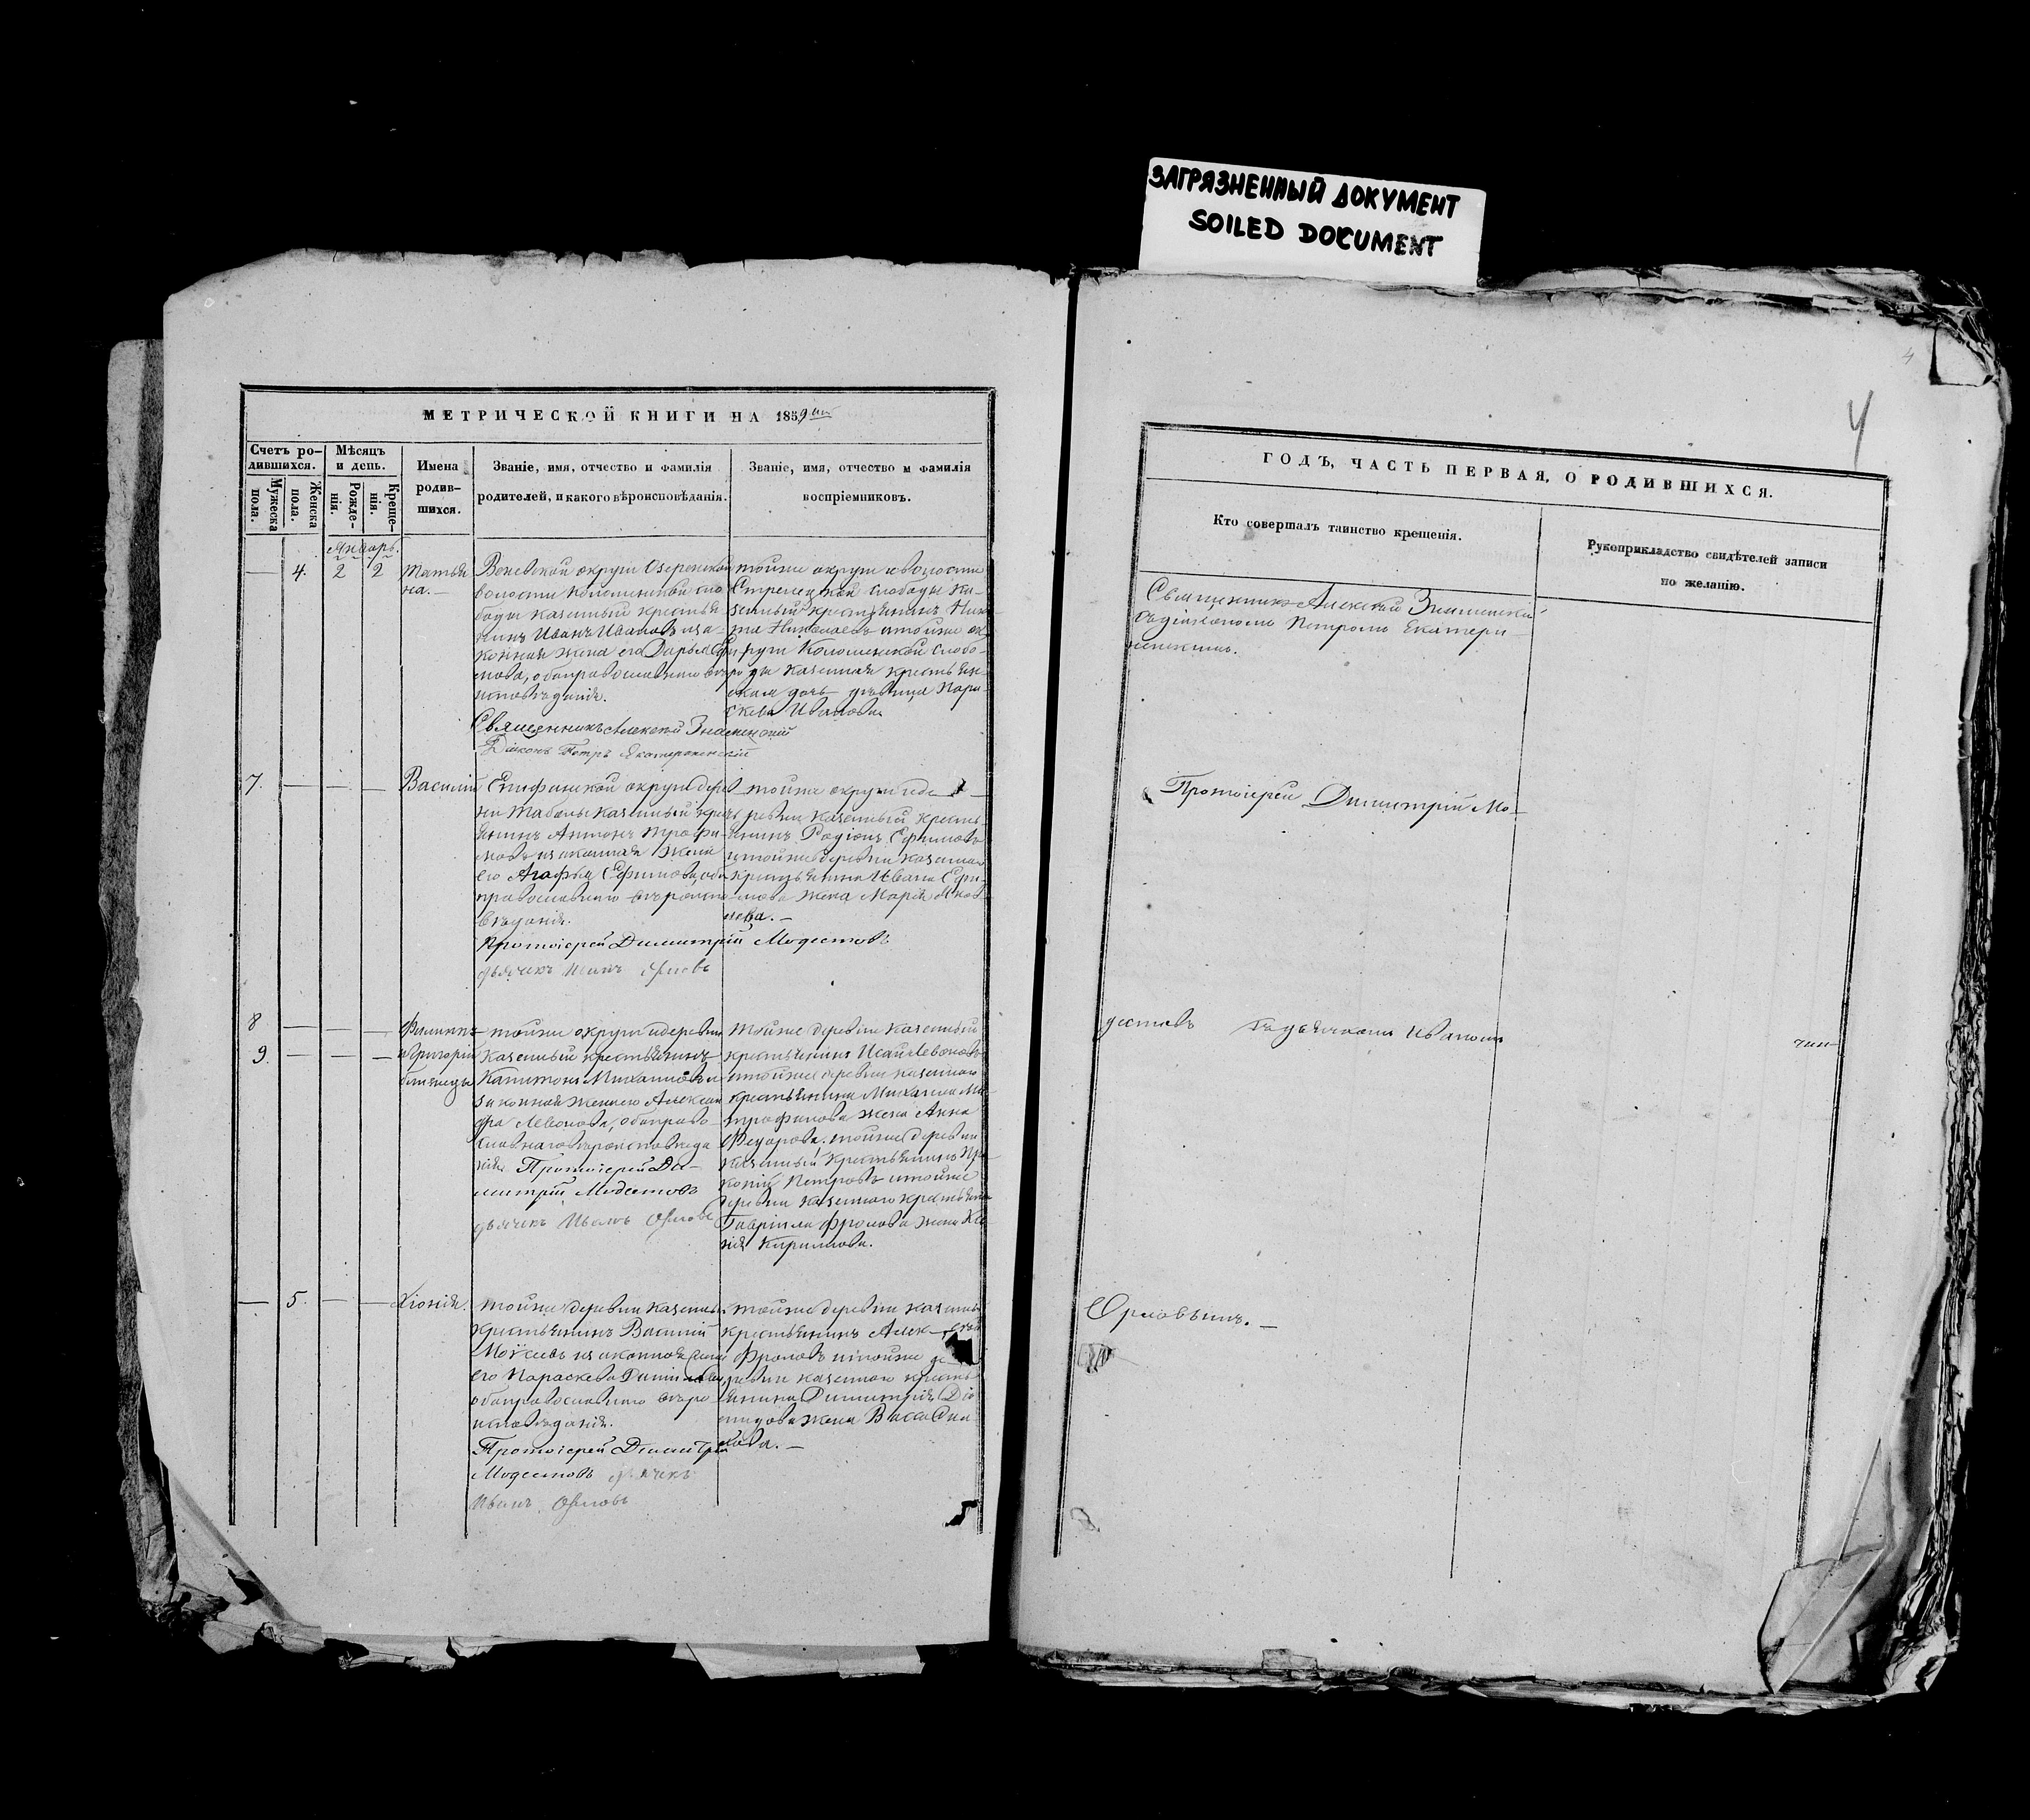 ЗАГРЯЗНЕННЫЙ ДОКУМЕНТ
SOILED DOCUMENT
МЕТРИЧЕСКОЙ КНИГИ НА 1859
Счетъ родившихся.
Мужеска пола.
Женска пола.
Мѣсяцъ и день.
Рожденія.
Крещенія.
Имена родившихся.
Званіе, имя, отчество и фамилія
родителей, и какого вѣроисповѣданія.
Званіе, имя, отчество и фамилія
воспріемниковъ.
Январь.
— 4. 2 2
Татья
на.—
Веневской округи Озеренской
волости Коломенской сло
боды казенный крестья
нинъ Иванъ Ивановъ и за-
конная жена его Дарья
мова, оба православнаго вѣро
исповѣданія.
Священникъ Алексѣй Знаменскій
Діаконъ Петръ Екатерининскій
тойже округи и волости
Стрелецкой слободы ка-
зенный крестьянинъ Ники
та Николаевъ и тойже ок
руги Коломенской слобо-
ды казенная крестьян-
ская дочь дѣвица Пара-
скева Иванова.
7. — — —
Василій
Епифанской округи дерев
ни Табалы казенный крес
янинъ Антонъ Трофи-
мовъ и законная жена
его Агафья Ефимова, оба
православнаго вѣроиспо
вѣданія.
Протоіерей Димитрій Модестовъ
дьячекъ Иванъ Орловъ
тойже округи и де
ревни казенный кресть
янинъ Родіонъ Ефимовъ
и тойже деревни казеннаго
крестьянина Ивана Ефи-
мова жена Марія Яков
лева.—
8 — — —
9. — — —
Филиппъ
и Григорій
близнецы
тойже округи и деревни
казенный крестьянинъ
Капитонъ Михайловъ и
законная жена его Алексан
дра Левонова, оба право
славнаго вѣроисповѣда
нія. Протоіерей Ди-
митрій Модестовъ
дьячекъ Иванъ Орловъ
тойже деревни казенный
крестьянинъ Исай Левоновъ
и тойже деревни казеннаго
крестьянина Михаила Ми
трофанова жена Анна
Федорова. тойже деревни
казенный крестьянинъ Про
копій Петровъ и тойже
деревни казеннаго крестьянина
Гавріила Фролова жена Ксе
нія Кирилова.
— 5. — —
Хіонія.
тойже деревни казенный
крестьянинъ Василій
Моѵсеевъ и законная жена
его Параскева Данилова,
оба православнаго вѣро
исповѣданія.
Протоіерей Димитрій
Модестовъ дьячекъ
Иванъ Орловъ
тойже деревни казенный
крестьянинъ Алек
Фроловъ и тойже де
ревни казеннаго кресть
янина Димитрія Діо
мидова жена Васса
кова.—
4
ГОДЪ, ЧАСТЬ ПЕРВАЯ, О РОДИВШИХСЯ.
Кто совершалъ таинство крещенія.
Рукоприкладство свидѣтелей записи
по желанію.
Священникъ Алексѣй Знаменскій
съ діакономъ Петромъ Екатери-
нинскимъ.
Протоіерей Димитрій Мо-
дестовъ съ дьячкомъ Иваномъ
Орловымъ.—